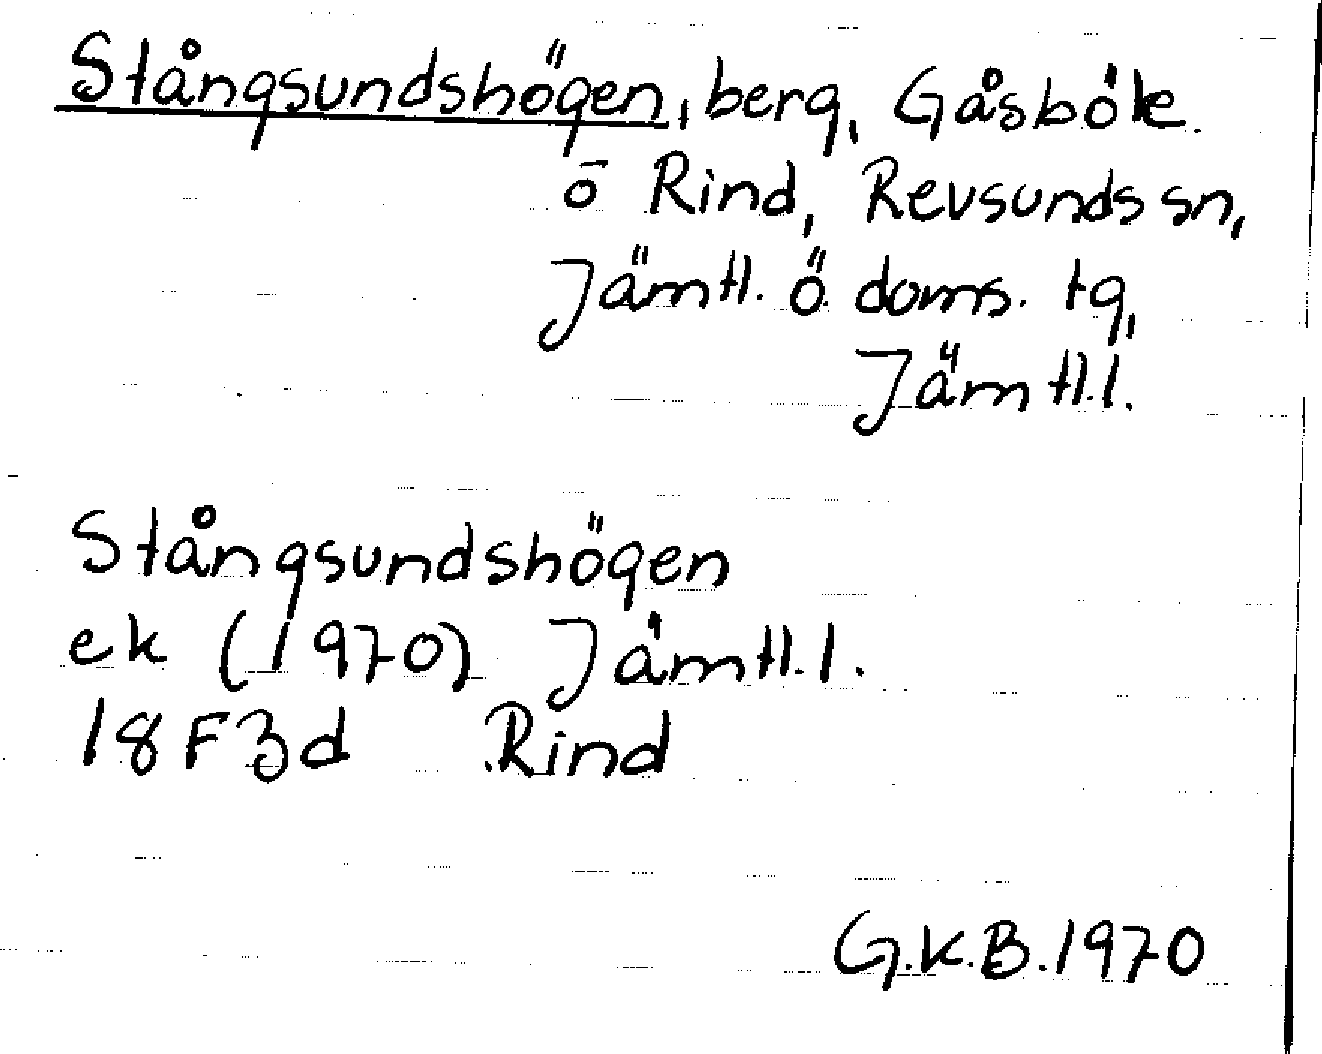 Stångsundshögen, berg, Gåsböle
ö Rind, Revsunds sn,
Jämtl. ö. doms. tg,
Jämtl.l.
Stångsundshögen
ek (1970) Jämtl.l.
18F3d Rind
G.K.B.1970